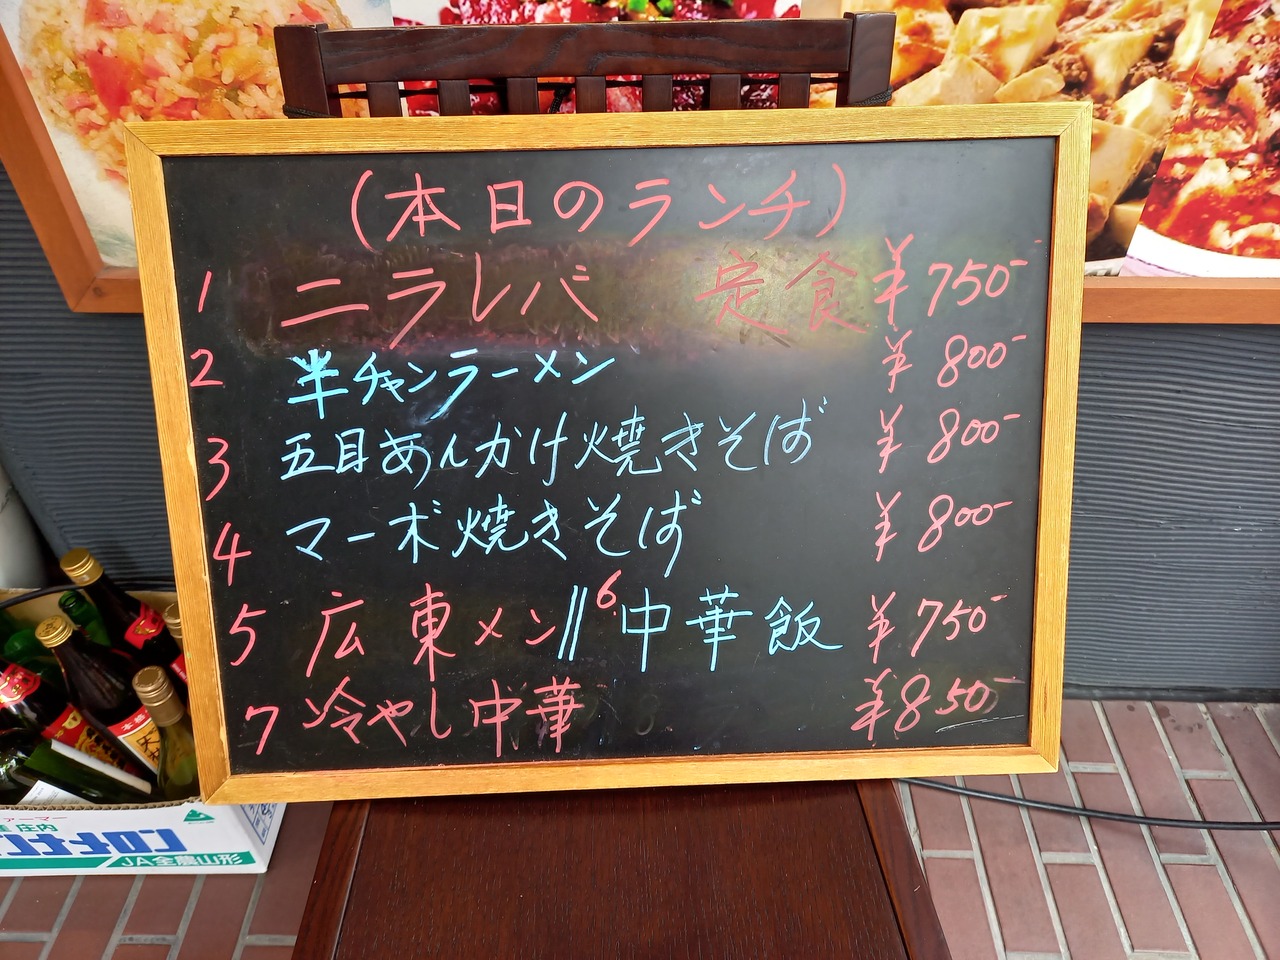 (本日のランチ)
1 ニラレバ 定食 ¥750-
2 半チャンラーメン ¥800-
3 五目あんかけ焼きそば ¥800-
4 マーボ焼きそば ¥800-
5 広東メン // 6. 中華飯 ¥750-
7 冷やし中華 ¥850-
庄内
JA全農山形